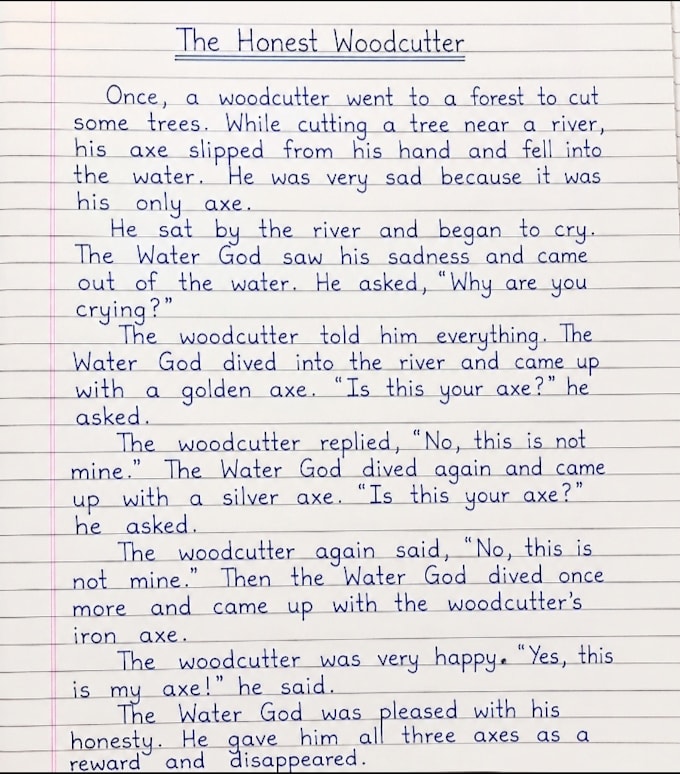 The Honest Woodcutter
Once, a woodcutter went to a forest to cut
some trees. While cutting a tree near a river,
his axe slipped from his hand and fell into
the water. He was very sad because it was
his only axe.
He sat by the river and began to cry.
The Water God saw his sadness and came
out of the water. He asked, “Why are you
crying?”
The woodcutter told him everything. The
Water God dived into the river and came up
with a golden axe. “Is this your axe?” he
asked.
The woodcutter replied, “No, this is not
mine.” The Water God dived again and came
up with a silver axe. “Is this your axe?”
he asked.
The woodcutter again said, “No, this is
not mine.” Then the Water God dived once
more and came up with the woodcutter’s
iron axe.
The woodcutter was very happy. “Yes, this
is my axe!” he said.
The Water God was pleased with his
honesty. He gave him all three axes as a
reward and disappeared.